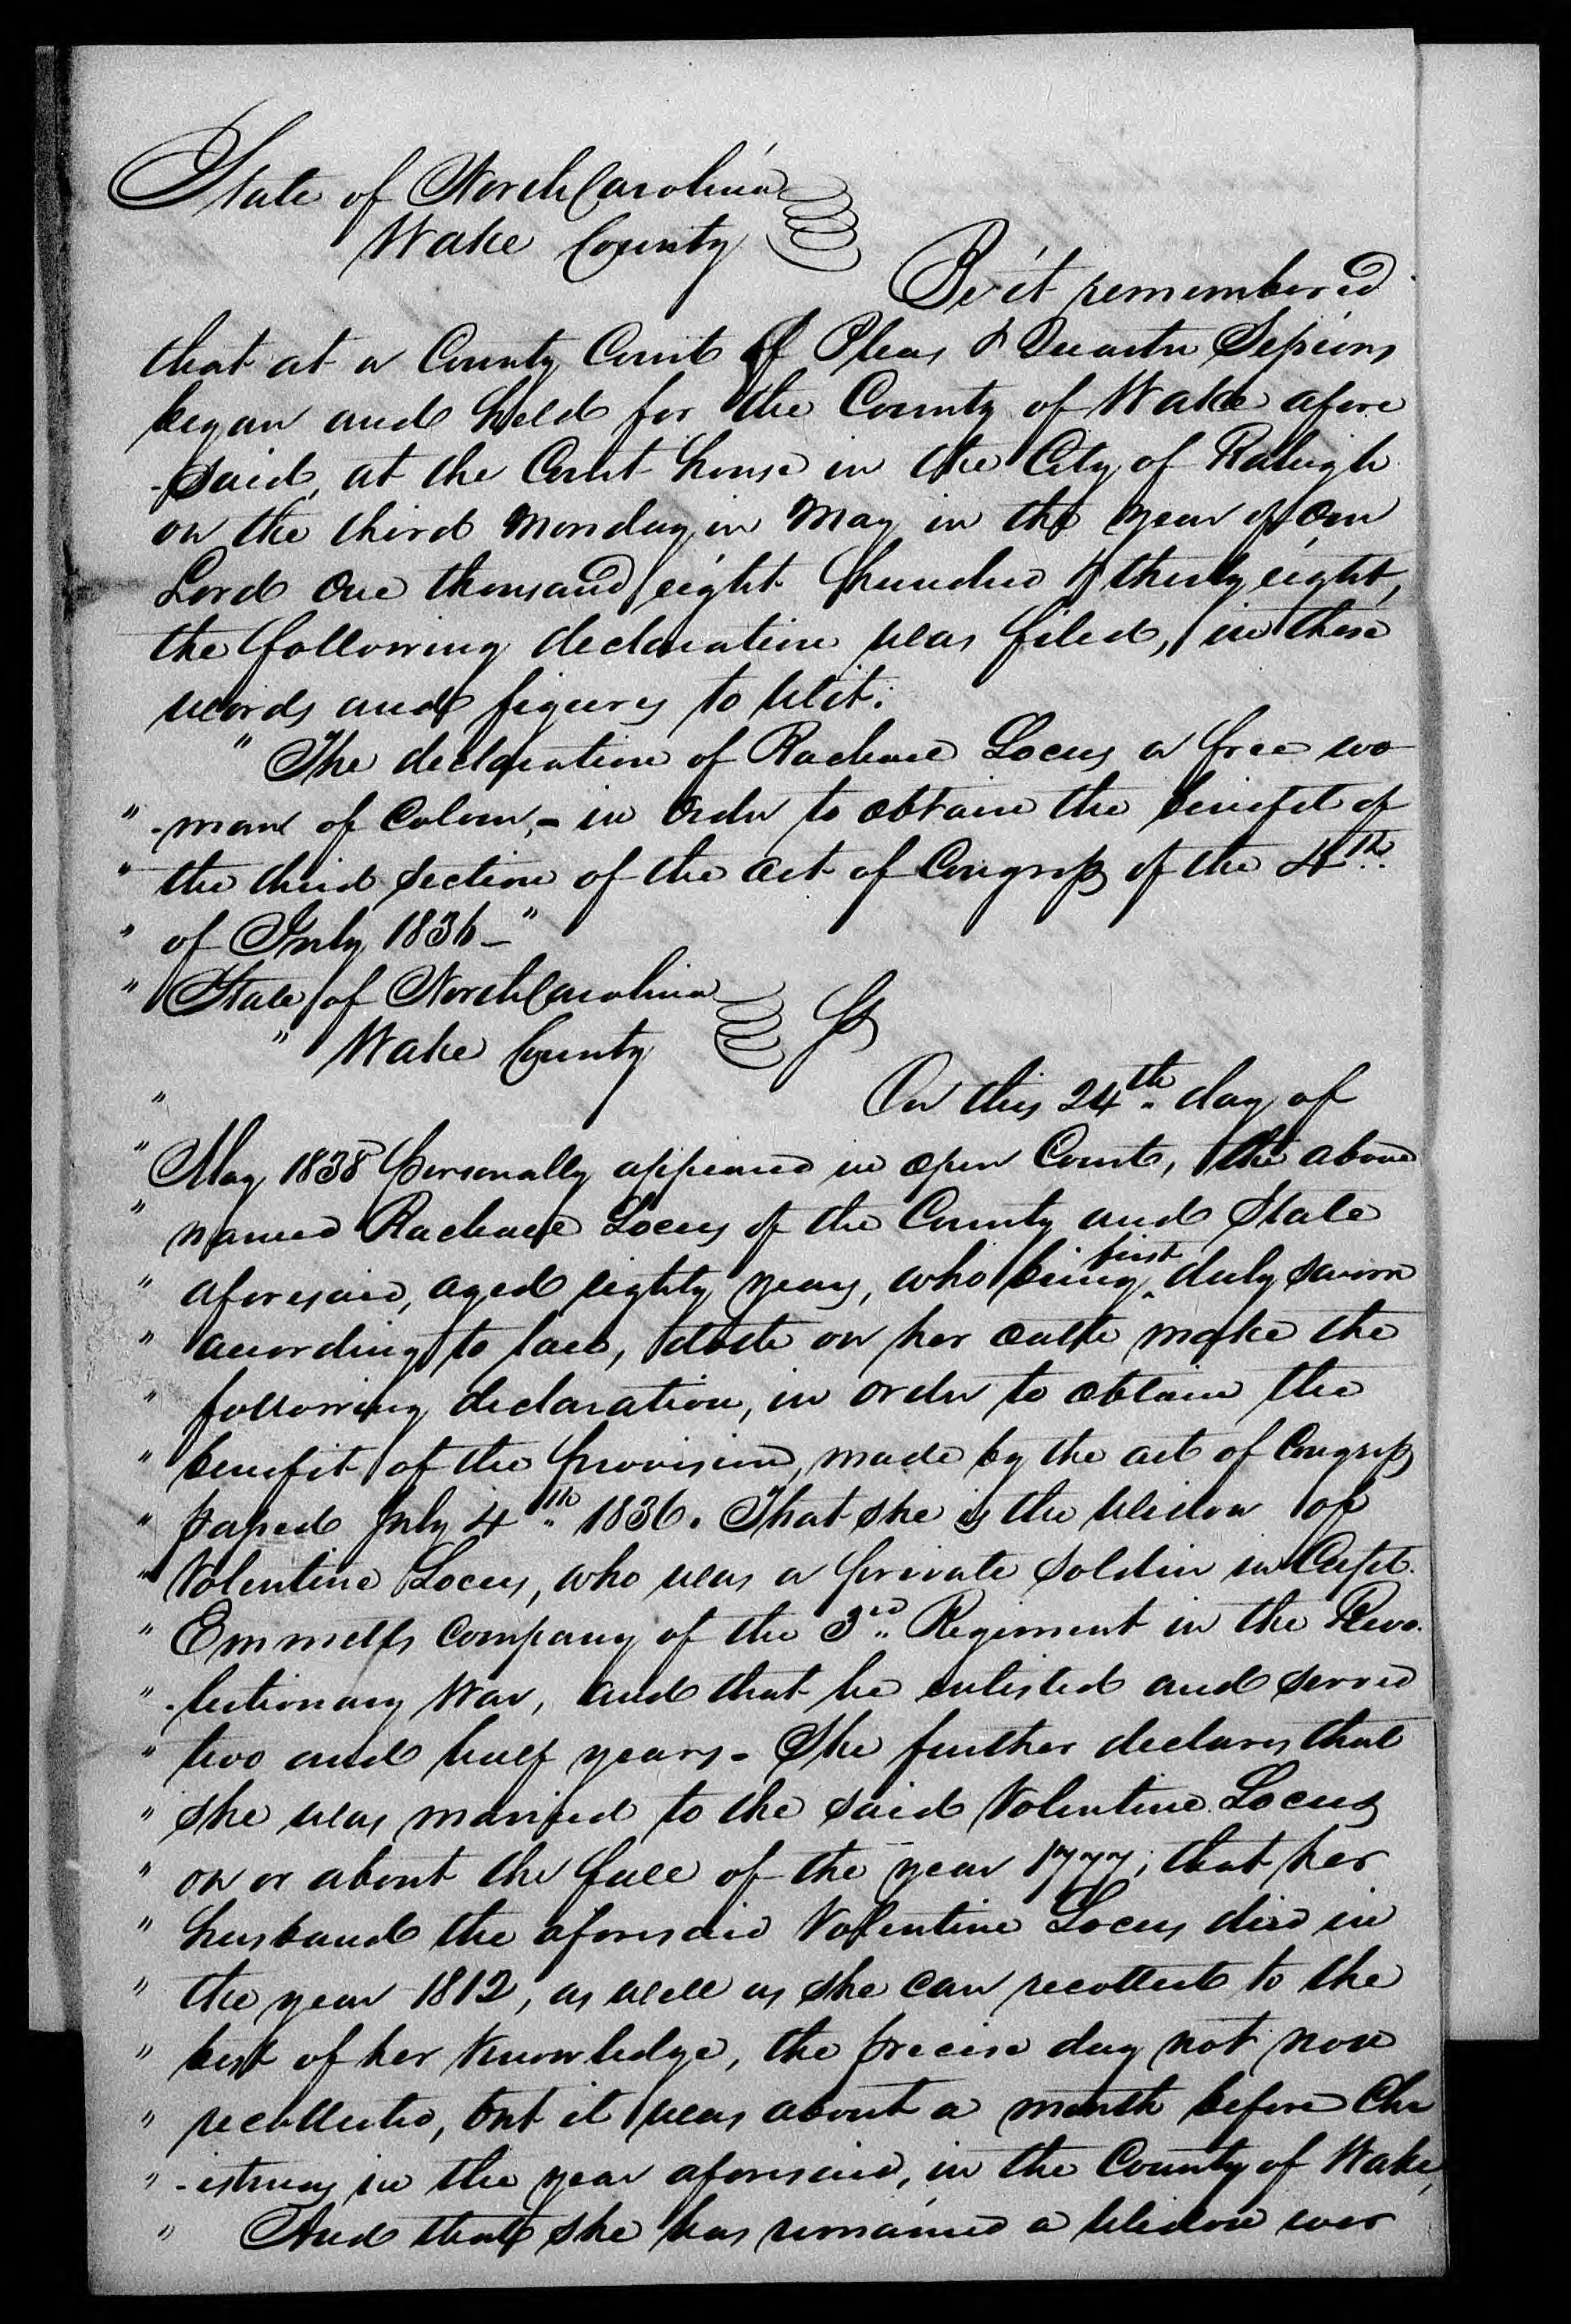 State of North Carolina
Wake County
Be it remembered
that at a County Court of Pleas & Quarter Sessions
began and held for the County of Wake afore
-said, at the Court house in the City of Raleigh
on the third Monday in May in the year of our
Lord One thousand eight hundred & thirty eight,
the following declaration was filed, in these
words and figures to wit:
" The declaration of Rachael Locus a free wo
" -man of Colour,- in order to obtain the benefit of
" the third section of the act of Congress of the 4th.
" of July 1836 - "
" State of North Carolina
" Wake County Ss
" On this 24th. day of
" May 1838 personally appeared in open Court, the above
" named Rachael Locus of the County and State
" aforesaid, aged eighty years, who being first duly sworn
" according to law, doth on her oath make the
" following declaration, in order to obtain the
" benefit of the provision, made by the act of Congress
" passed July 4th. 1836. That she is the widow of
" Volentine Locus, who was a private soldier in Capt.
" Emmetts Company of the 3rd. Regiment in the Revo.
" -lutionary War, and that he enlisted and served
" two and half years - She further declares that
" she was married to the said Volentine Locus
" on or about the fall of the year 1777; that her
" husband the aforesaid Volentine Locus died in
" the year 1812, as well as she can recollect to the
" best of her knowledge, the precise day not now
" recollected, but it was about a month before Chr
" -istmas in the year aforesaid, in the County of Wake,
" And that she has remained a widow ever